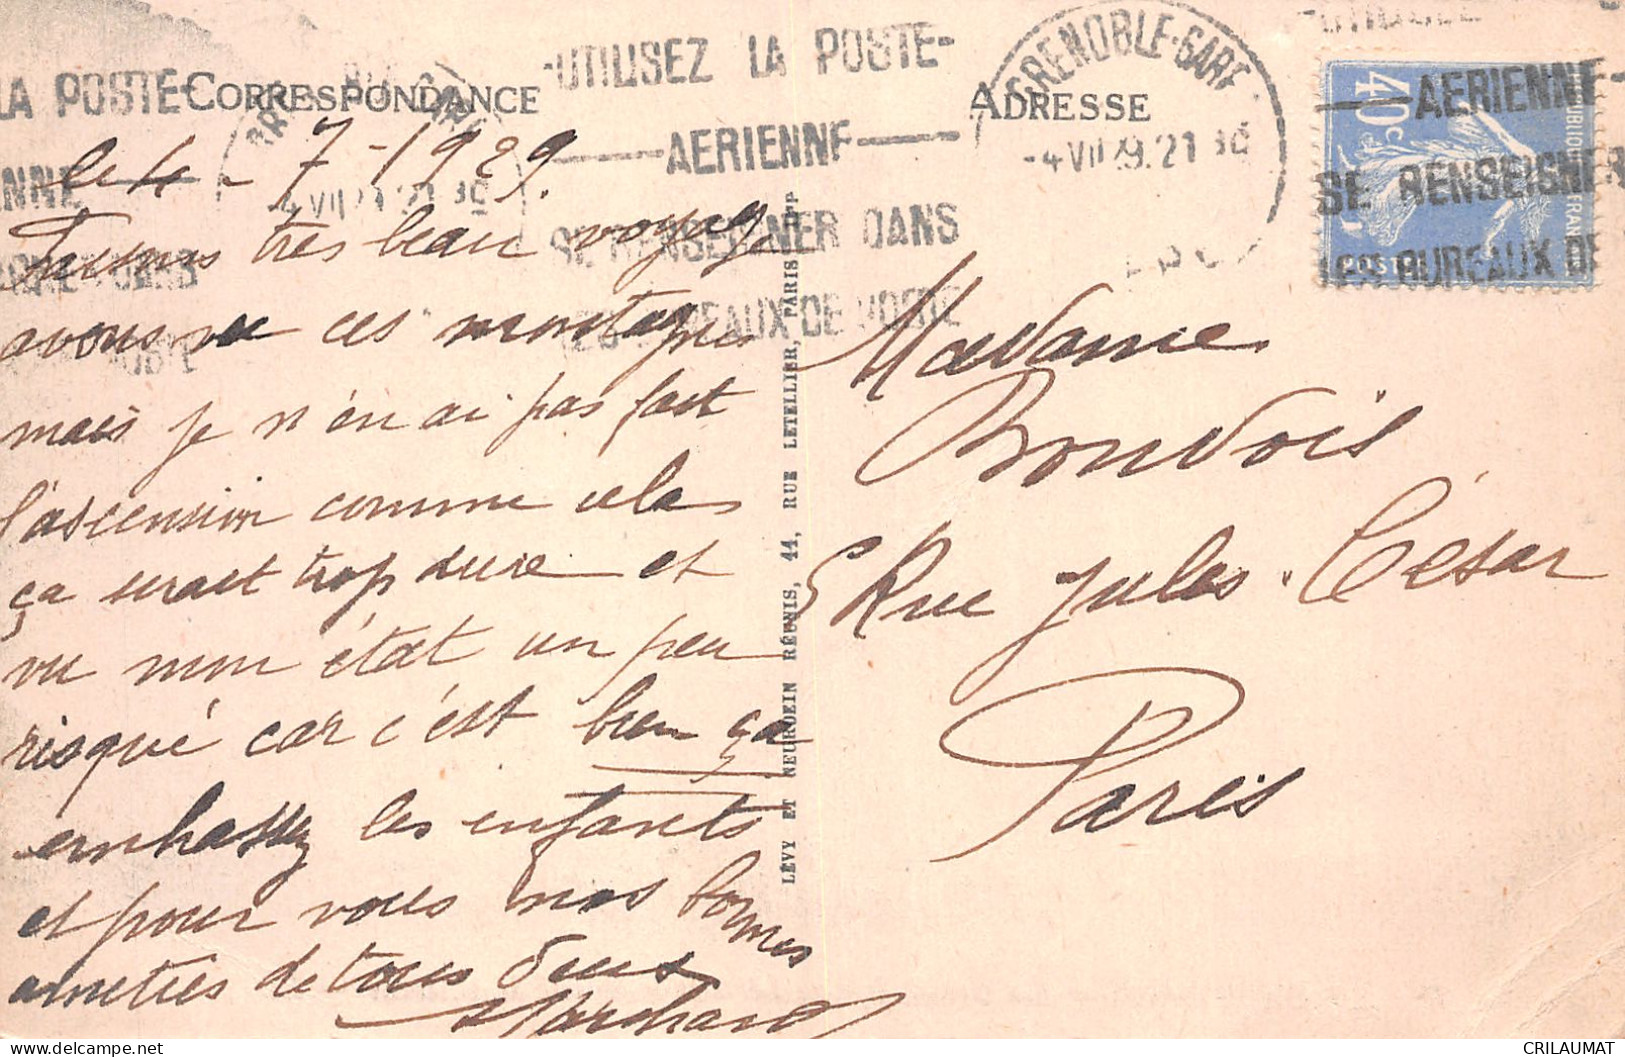 CORRESPONDANCE
ADRESSE
LA POSTE-
-UTILISEZ LA POSTE-
AERIENNE
SE RENSEIGNER DANS
LES BUREAUX DE POSTE
GRENOBLE-GARE
-4 VII 29. 21 30
AERIENNE-
SE RENSEIGNER
LES BUREAUX DE
40c
POSTES
le 4 - 7 - 1929.
très beau voyage
avons vu ces montagnes
mais je n'en ai pas fait
l'ascension comme cela
ça serait trop dure et
vu mon état un peu
risqué car c'est bien ça
embassez les enfants
et pour vous nos bonnes
amitiés de tous deux
Marchand
LÉVY ET NEURDEIN RÉUNIS, 44, RUE LETELLIER, PARIS
Madame
Bonvois
5 Rue Jules César
Paris
CRILAUMAT